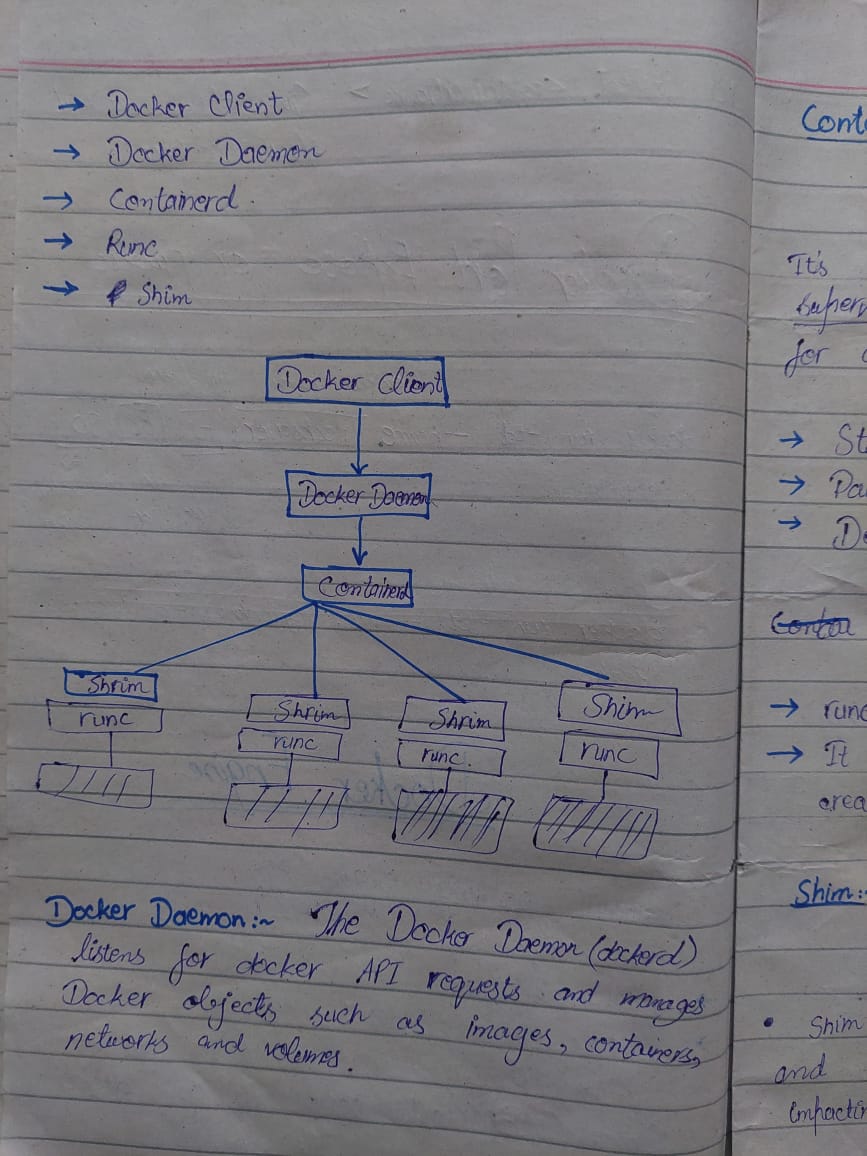 → Docker Client
→ Docker Daemon
→ Containerd.
→ Runc
→ Shim
Docker Client
Docker Daemon
Containerd
Shrim
runc
Shrim
runc
Shrim
runc.
Shim
runc
Docker Daemon:~ The Docker Daemon (dockerd)
listens for docker API requests and manages
Docker objects such as images, containers,
networks and volumes.
It's
for
→ St
→ Pa
→ De
→ runc
→ It
Shim:-
• Shim
and